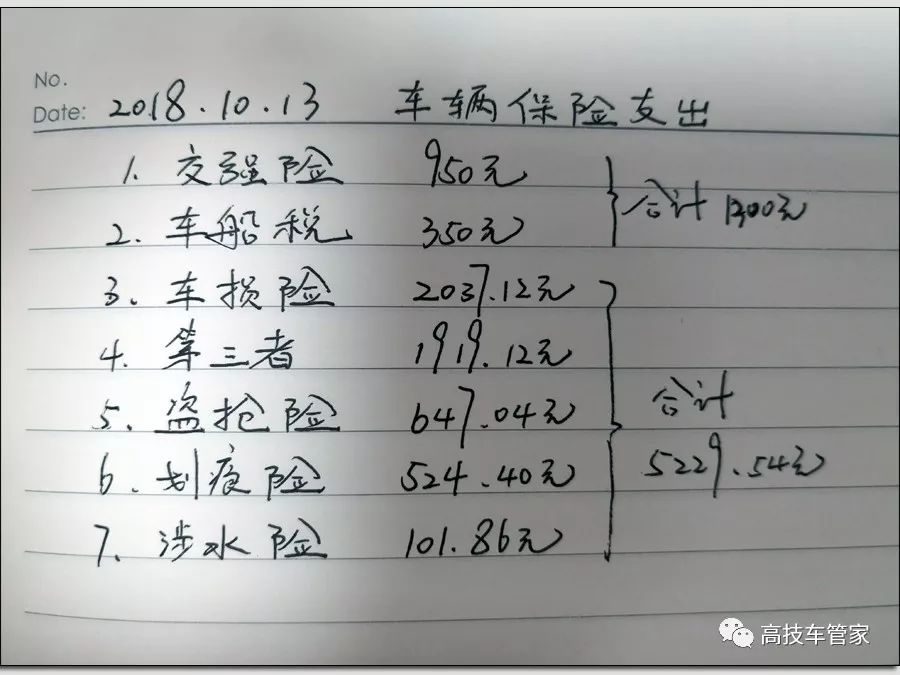 No.
Date: 2018.10.13 车辆保险支出
1. 交强险 950元
合计 1300元
2. 车船税 350元
3. 车损险 2037.12元
4. 第三者 1919.12元
5. 盗抢险 647.04元
合计
5229.54元
6. 划痕险 524.40元
7. 涉水险 101.86元
高技车管家